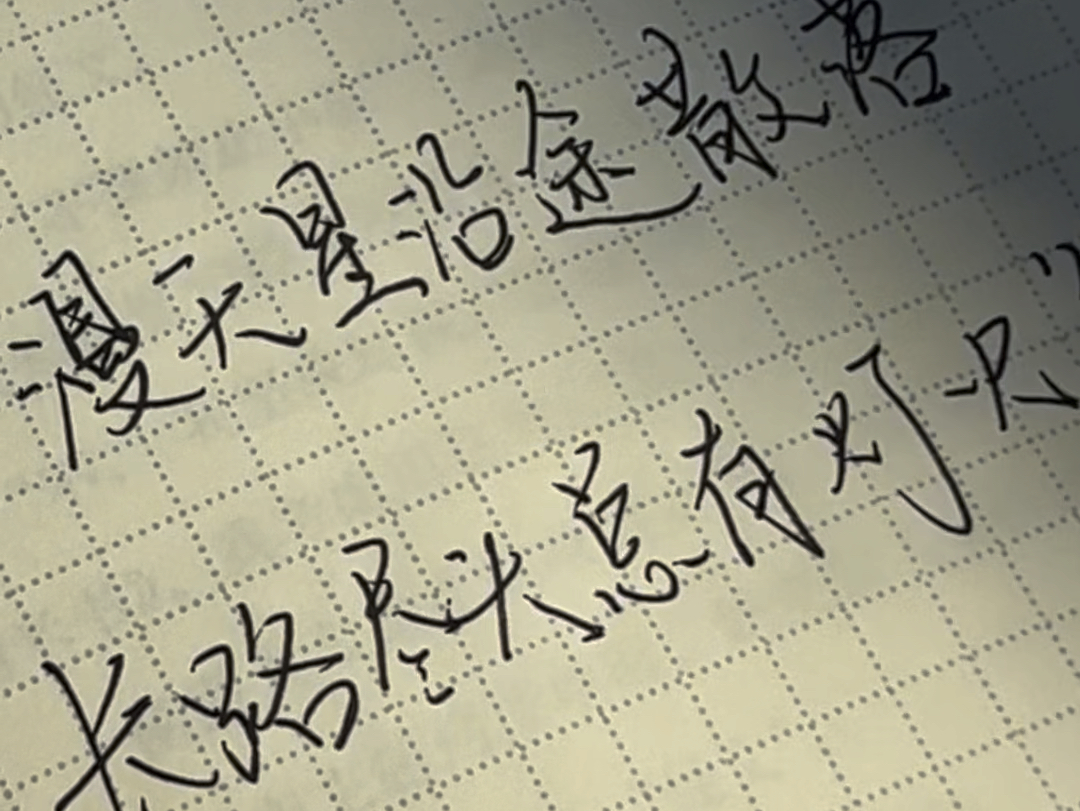 漫天星沿途散落
长路尽头总有灯火